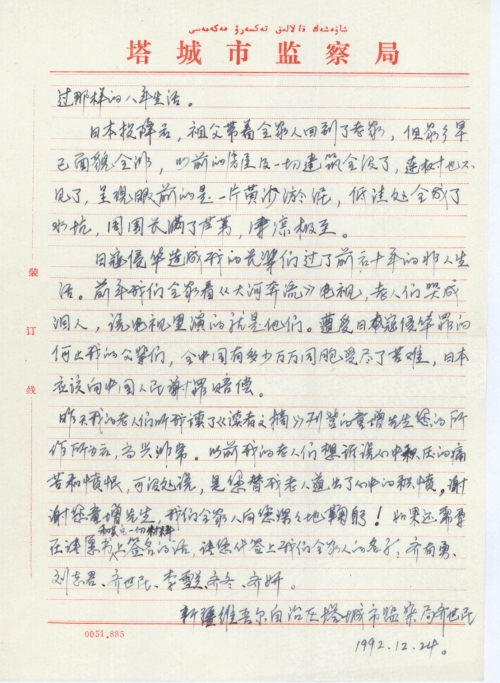 塔城市监察局
过那样的八年生活。
日本投降后，祖父带着全家人回到了老家，但家乡早
已面貌全非，以前的房屋及一切建筑全没了，连树也不
见了，呈现眼前的是一片黄沙淤泥，低洼处全成了
水坑，周围长满了芦苇，凄凉极至。
日寇侵华造成我的先辈们过了前后十年的非人生
活。前年我们全家看《大河奔流》电视，老人们哭成
泪人，该电视里演的就是他们。遭受日本寇侵华罪的
何止我的父辈们，全中国有多少万万同胞受尽了苦难，日本
应该向中国人民谢罪赔偿。
昨天我的老人们听我读了《读者文摘》刊登的童增先生您的所
作所为后，高兴非常。以前我的老人们想诉说心中积压的痛
苦和愤恨，可没处说，是您替我老人道出了心中的积愤，谢
谢您童增先生，我们全家人向您深深地鞠躬！如果还需要
在请愿书上签名的话，请您代签上我们全家人的名字，齐有勇、
刘志君、齐世民、李雪兰、齐冬、齐妍。
新疆维吾尔自治区塔城市监察局齐世民
1992.12.24。
装
订
线
0051.885